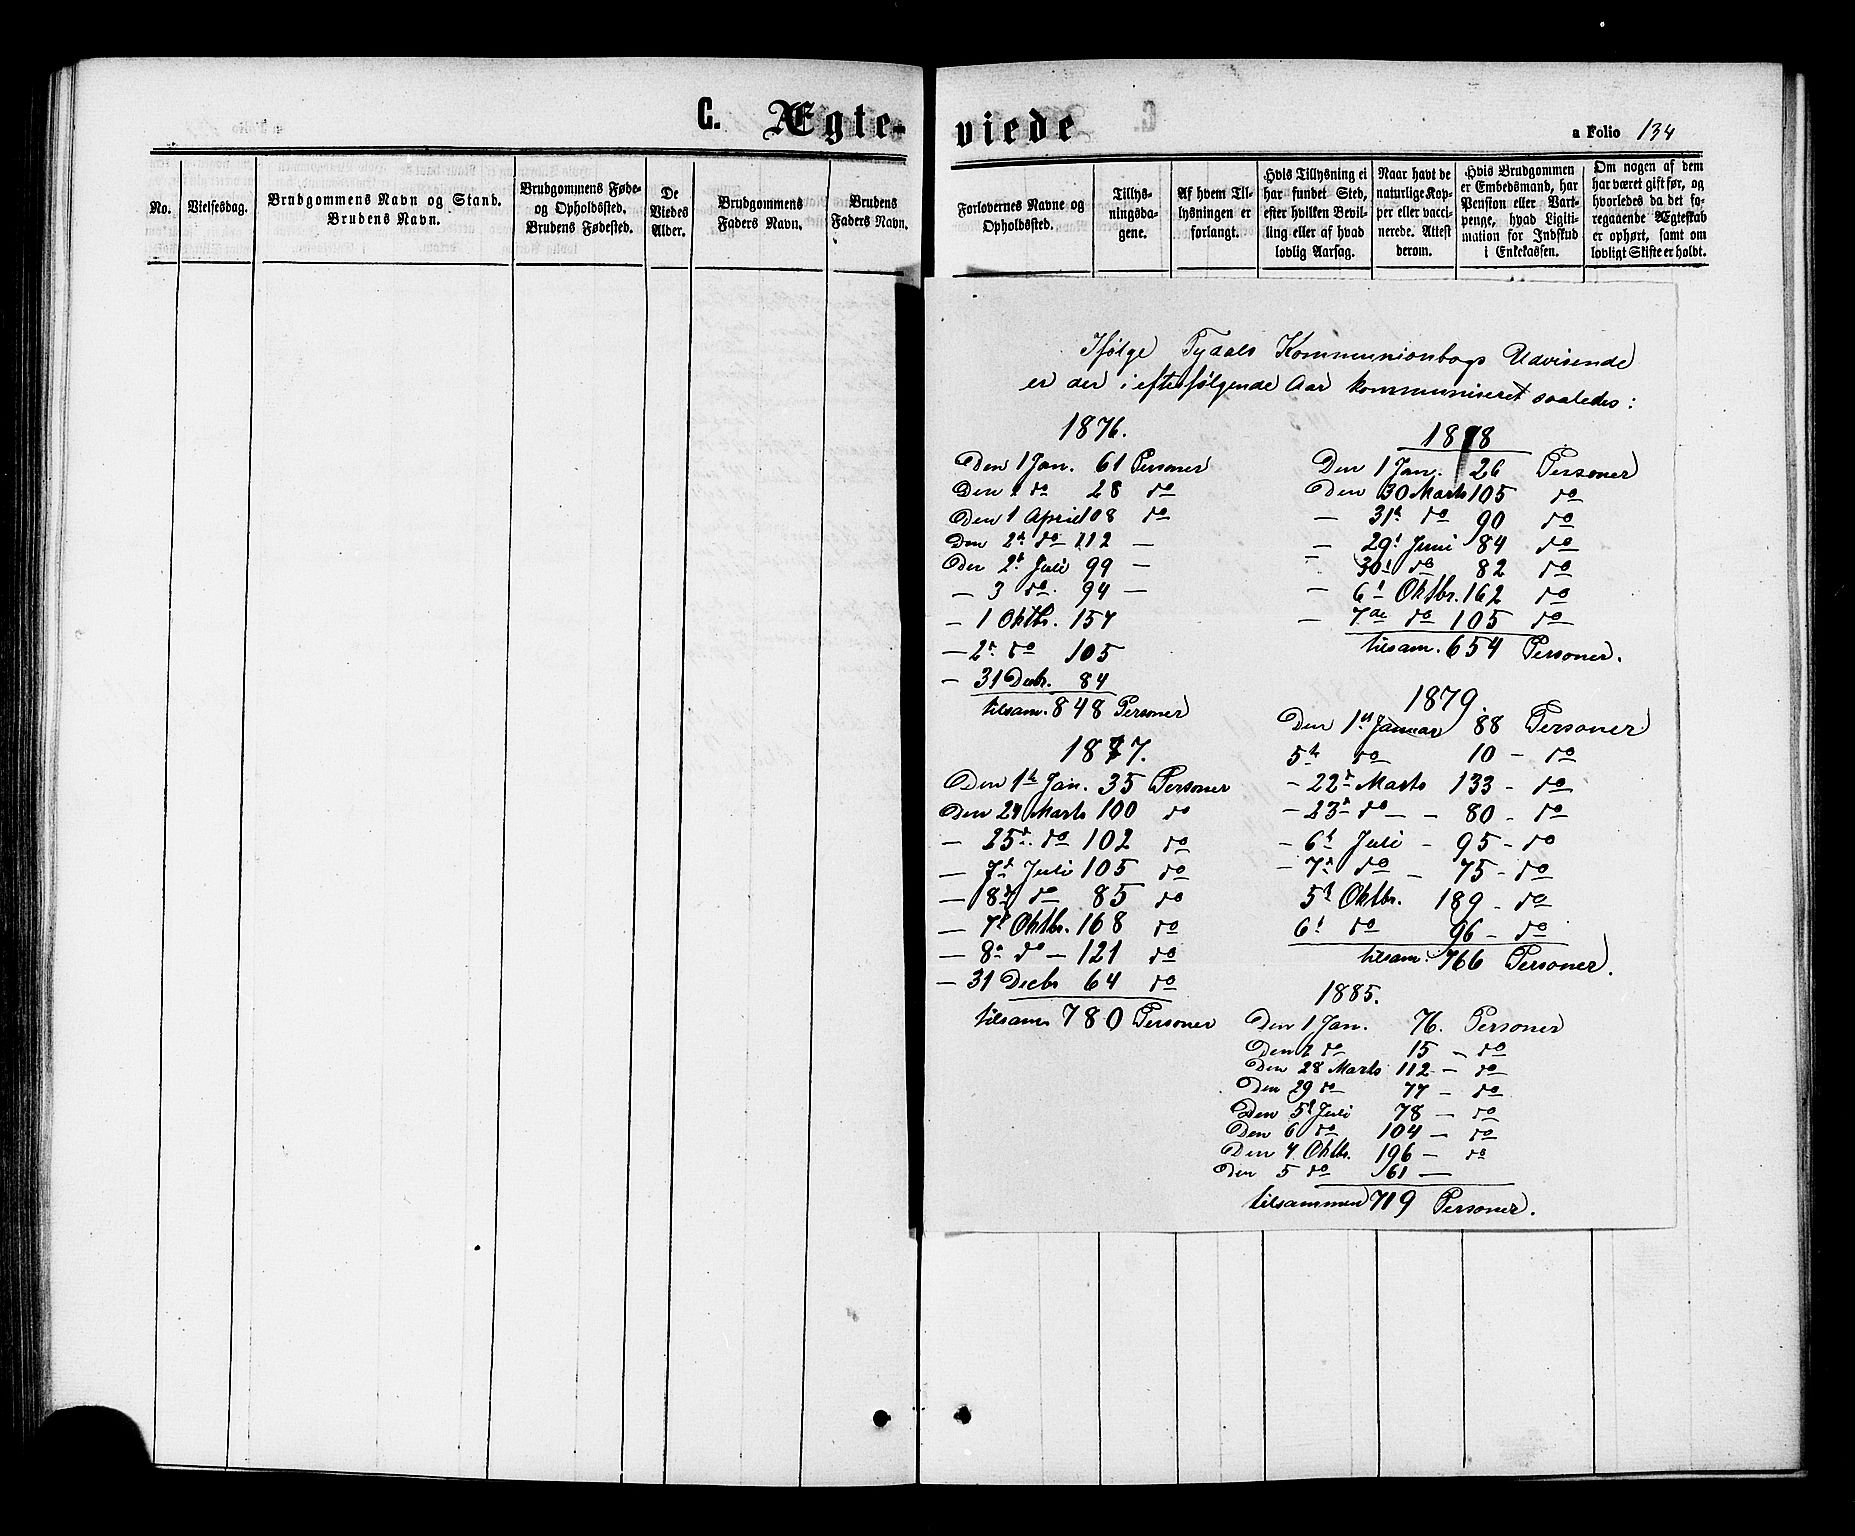 C. Ægte-
viede
a Folio 134
No.
Vielsesdag.
Brudgommens Navn og Stand.
Brudens Navn.
Brudgommens Føde-
og Opholdssted.
Brudens Fødested.
De
Viedes
Alder.
Brudgommens
Faders Navn.
Brudens
Faders Navn.
Forlovernes Navne og
Opholdssted.
Tillys-
ningsda-
gene.
Af hvem Til-
lysningen er
forlangt.
Hvis Tillysning ei
har fundet Sted,
efter hvilken Bevil-
ling eller af hvad
lovlig Aarsag.
Naar havt de
naturlige Kop-
per eller vacci-
nerede. Attest
derom.
Hvis Brudgommen
er Embedsmand, har
Pension eller Vart-
penge, hvad Ligiti-
mation for Indskud
i Enkekassen.
Om nogen af dem
har været gift før, og
hvorledes da det fo-
regaaende Ægteskab
er ophørt, samt om
lovligt Skifte er holdt.
Ifølge Tydals Kommunionbogs Udvisende
er der i efterfølgende Aar kommuniseret saaledes:
1876.
Den 1 Jan. 61 Personer
Den 2 do 28 do
Den 1 April 108 do
Den 2d do 112 —
Den 2d Juli 99 —
— 3 do. 94 —
— 1 Oktbr. 157
— 2d do 105
— 31 Decbr. 84
tilsam. 848 Personer
1877.
Den 1ste Jan. 35 Personer
Den 24 Marts 100 do
— 25d do 102 do
— 7d Juli 105 do
— 8d do 85 do
— 7d Oktbr. 168 do
— 8d do — 121 do
— 31 Decbr 64 do
tilsam 780 Personer
1878
Den 1 Jan. 26 Personer
Den 30 Marts 105 do
— 31te do 90 do
— 29d Juni 84 do
— 30d do 82 do
— 6d Oktbr. 162 do
— 7de do 105 do
tilsam. 654 Personer.
1879.
Den 1st Januar 88 Personer
5te do 10 — do
— 22d Marts 133 — do
— 23d do — — 80 — do
— 6t Juli — 95 — do
— 7d do — 75 — do
5t Oktbr. 189 — do
6t do 96 — do
tilsam. 766 Personer.
1885.
Den 1 Jan. 76. Personer
Den 2 do 15 — do
Den 28 Marts 112 — do
Den 29 do 77 — do
Den 5t Juli 78 — do
Den 6 do 104 — do
Den 4 Oktbr. 196 — do
Den 5 do 61 —
tilsammen 719 Personer.